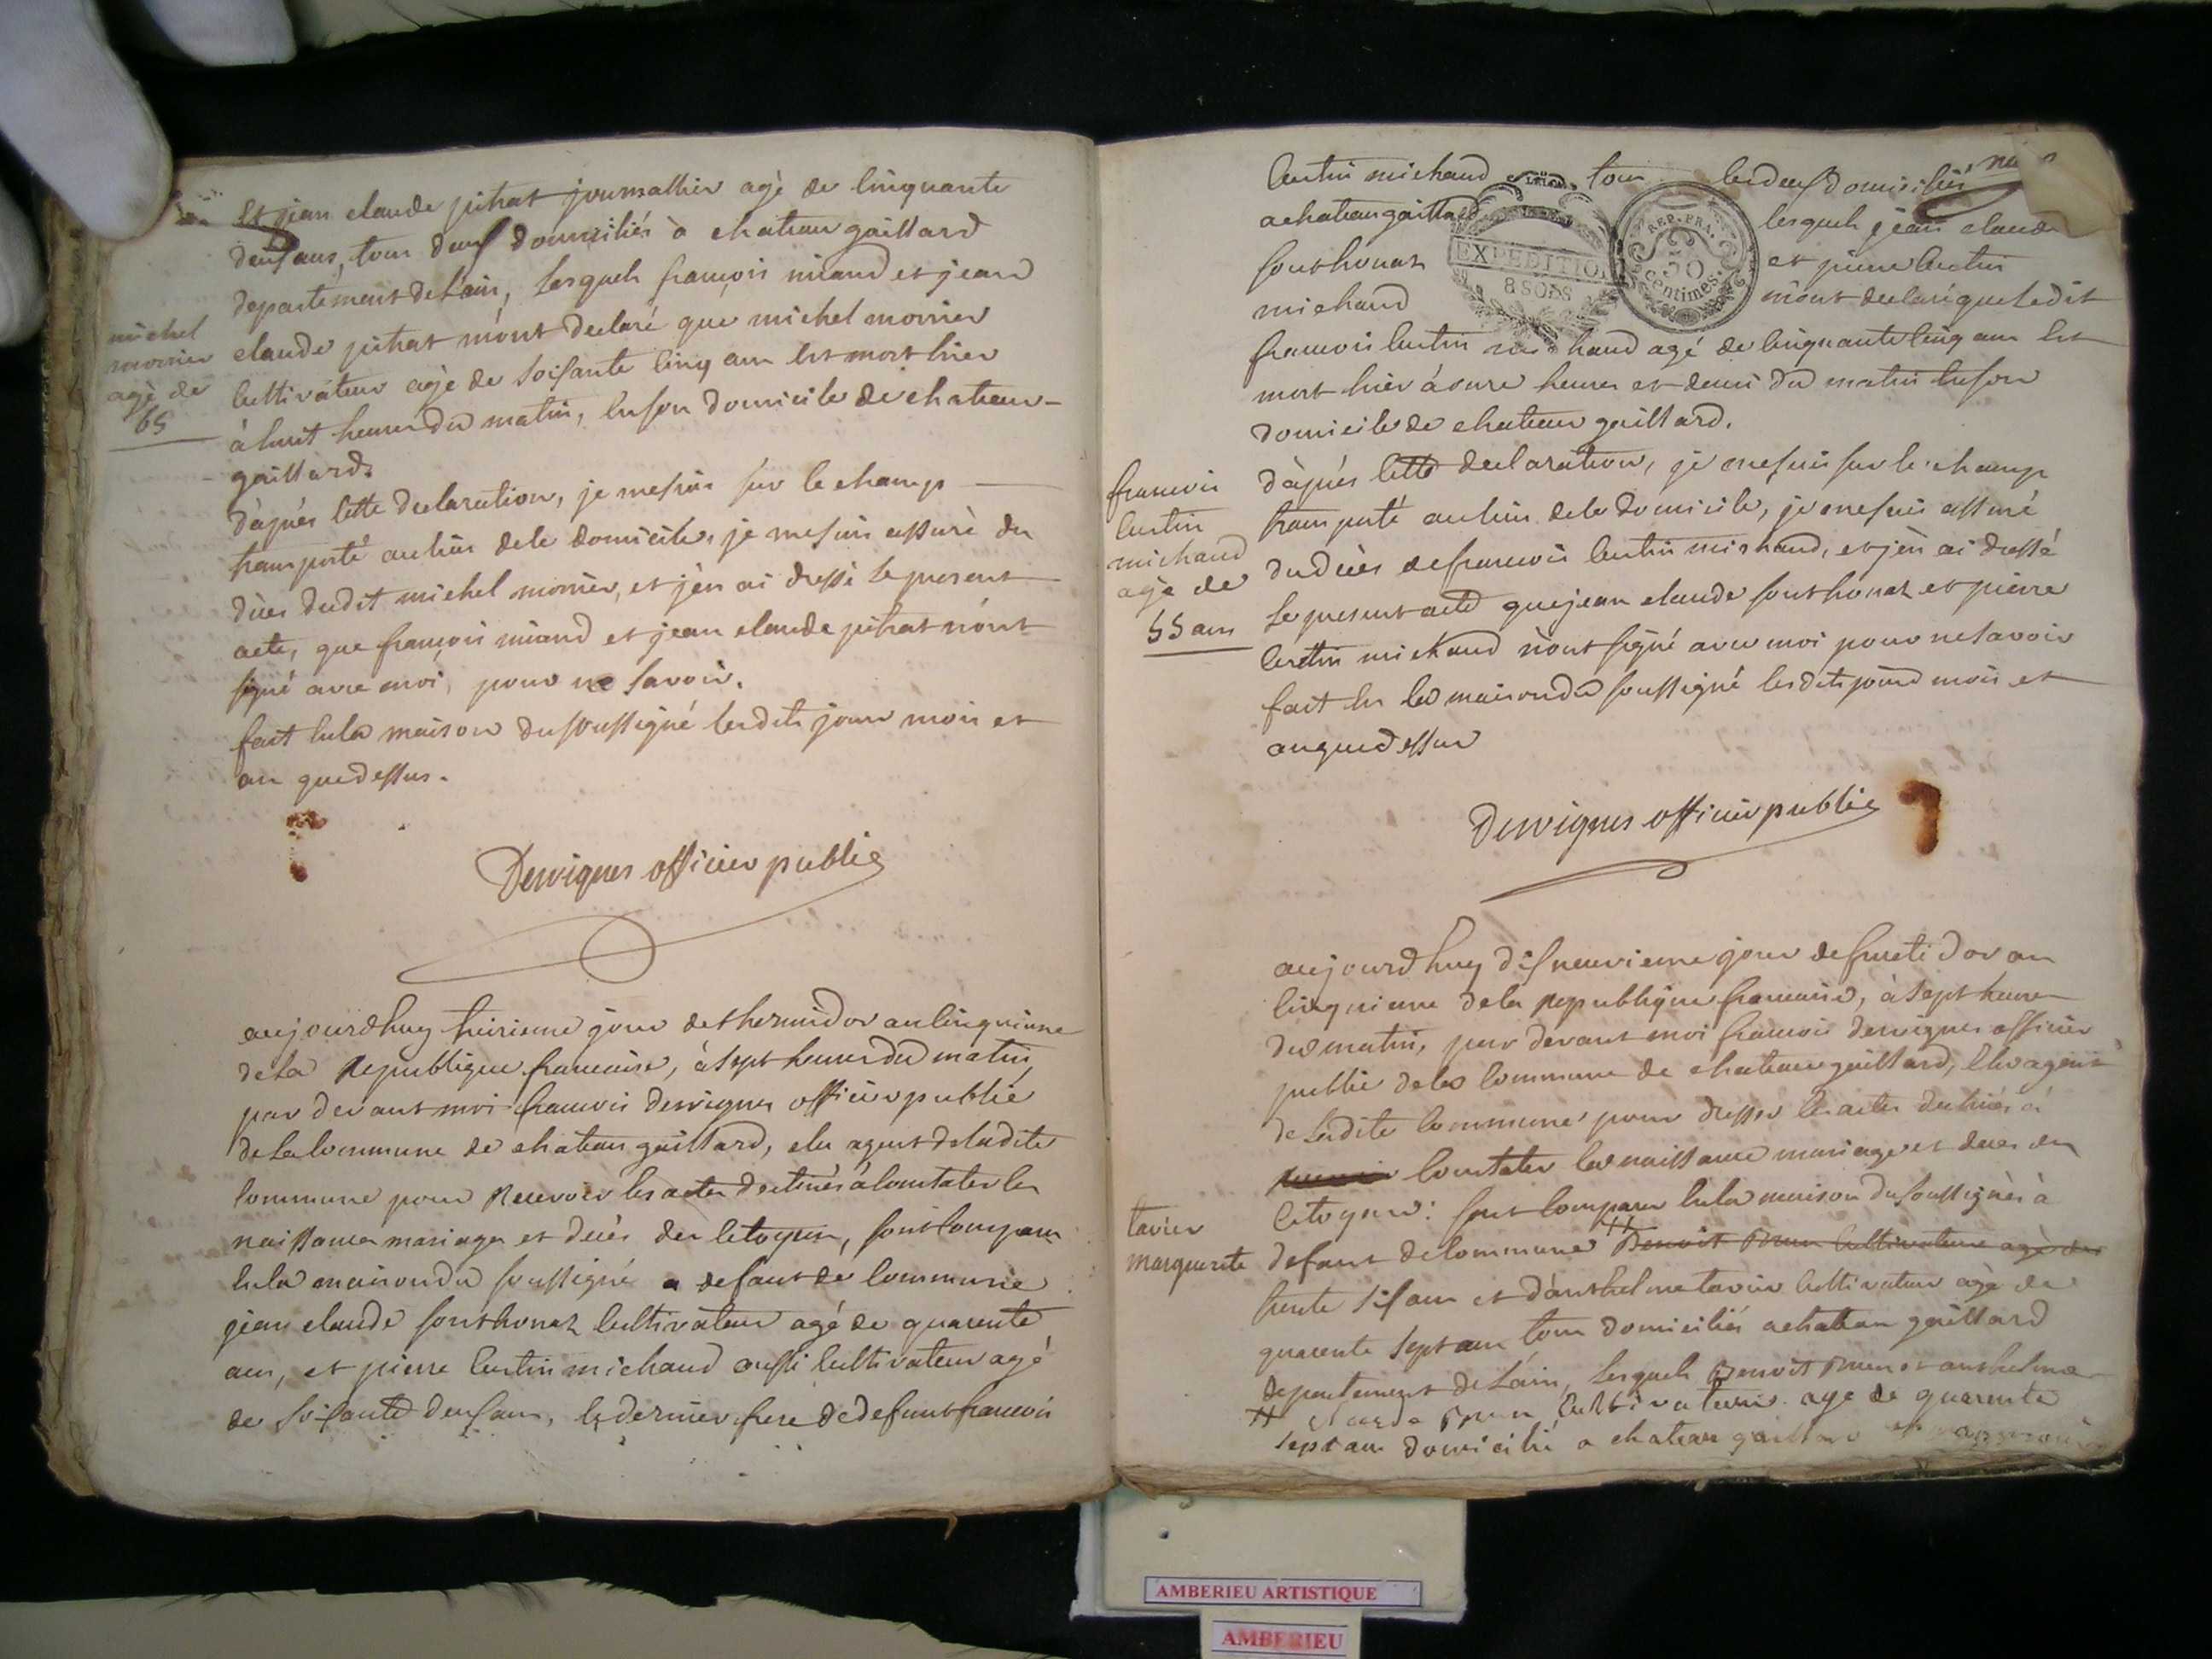 Et jean claude pitrat journallier agè de cinquante
deux ans, tous deux domiciliés à chateau gaillard
departement de L'ain, Lesquels françois niand et jean
claude pitrat m'ont declaré que michel monier
cultivateur agè de soixante cinq ans est mort hier
à huit heures du matin, en son domicile de chateau-
gaillard.
michel
monier
agè de
65
d'après cette declaration, je me suis sur le champ
transporté au lieu de ce domicile, je me suis assuré du
décès dudit michel monier, et j'en ai dressé le present
acte, que françois niand et jean claude pitrat n'ont
signé avec moi, pour ne savoir.
fait en la maison du soussigné lesdits jour mois et
an que dessus.
Desvignes officier public
aujourdhuy treizieme jour de thermidor an cinquieme
de la Republique francaise, à sept heures du matin,
par devant moi francois desvignes officier public
de la commune de chateau gaillard, elu agent de ladite
commune pour Recevoir les actes destinés à constater les
naissance mariage et decès des citoyens, sont comparu
en la maison du soussigné a defaut de commune
jean claude fonthonat cultivateur agé de quarente
ans, et pierre Curtin michaud aussi cultivateur agé
de soixante deux ans, le dernier frere de defunt francois
Curtin michaud tous les deux domiciliés
a chateau gaillard lesquels jean claude
fonthonat et pierre Curtin
michaud m'ont declaré que ledit
EXPEDITION
8 SOLS
REP. FRA.
50
Centimes.
francois Curtin michaud agé de cinquante cinq ans est
mort hier à onze heures et demi du matin en son
domicile de chateau gaillard.
francois
Curtin
michaud
agè de
55 ans
d'après cette declaration, je me suis sur le champ
transporté au lieu de ce domicile, je me suis assuré
du decès de francois Curtin michaud, et j'en ai dressé
le present acte que jean claude fonthonat et pierre
Curtin michaud n'ont signé avec moi pour ne savoir
fait en la maison du soussigné lesdits jour mois et
an que dessus
Desvignes officier public
aujourdhuy dix neuvieme jour de fructidor an
cinquieme de la Republique francaise, à sept heures
du matin, par devant moi francois desvignes officier
public de la commune de chateau gaillard, elu agent
de ladite commune pour dresser les actes destinés à
constater les naissance mariage et deces des
citoyens: sont comparu en la maison du soussigné à
tavier
marguerite
defaut de commune # Benoit Brun Cultivateur agè de
trente six ans et d'anthelme tavier cultivateur agè de
quarente sept ans tous domiciliés a chateau gaillard
departement de L'ain, lesquels Benoit Brun et anthelme
# Brun Cultivateur agé de quarente
sept ans domicilié a chateau gaillard
AMBERIEU ARTISTIQUE
AMBERIEU